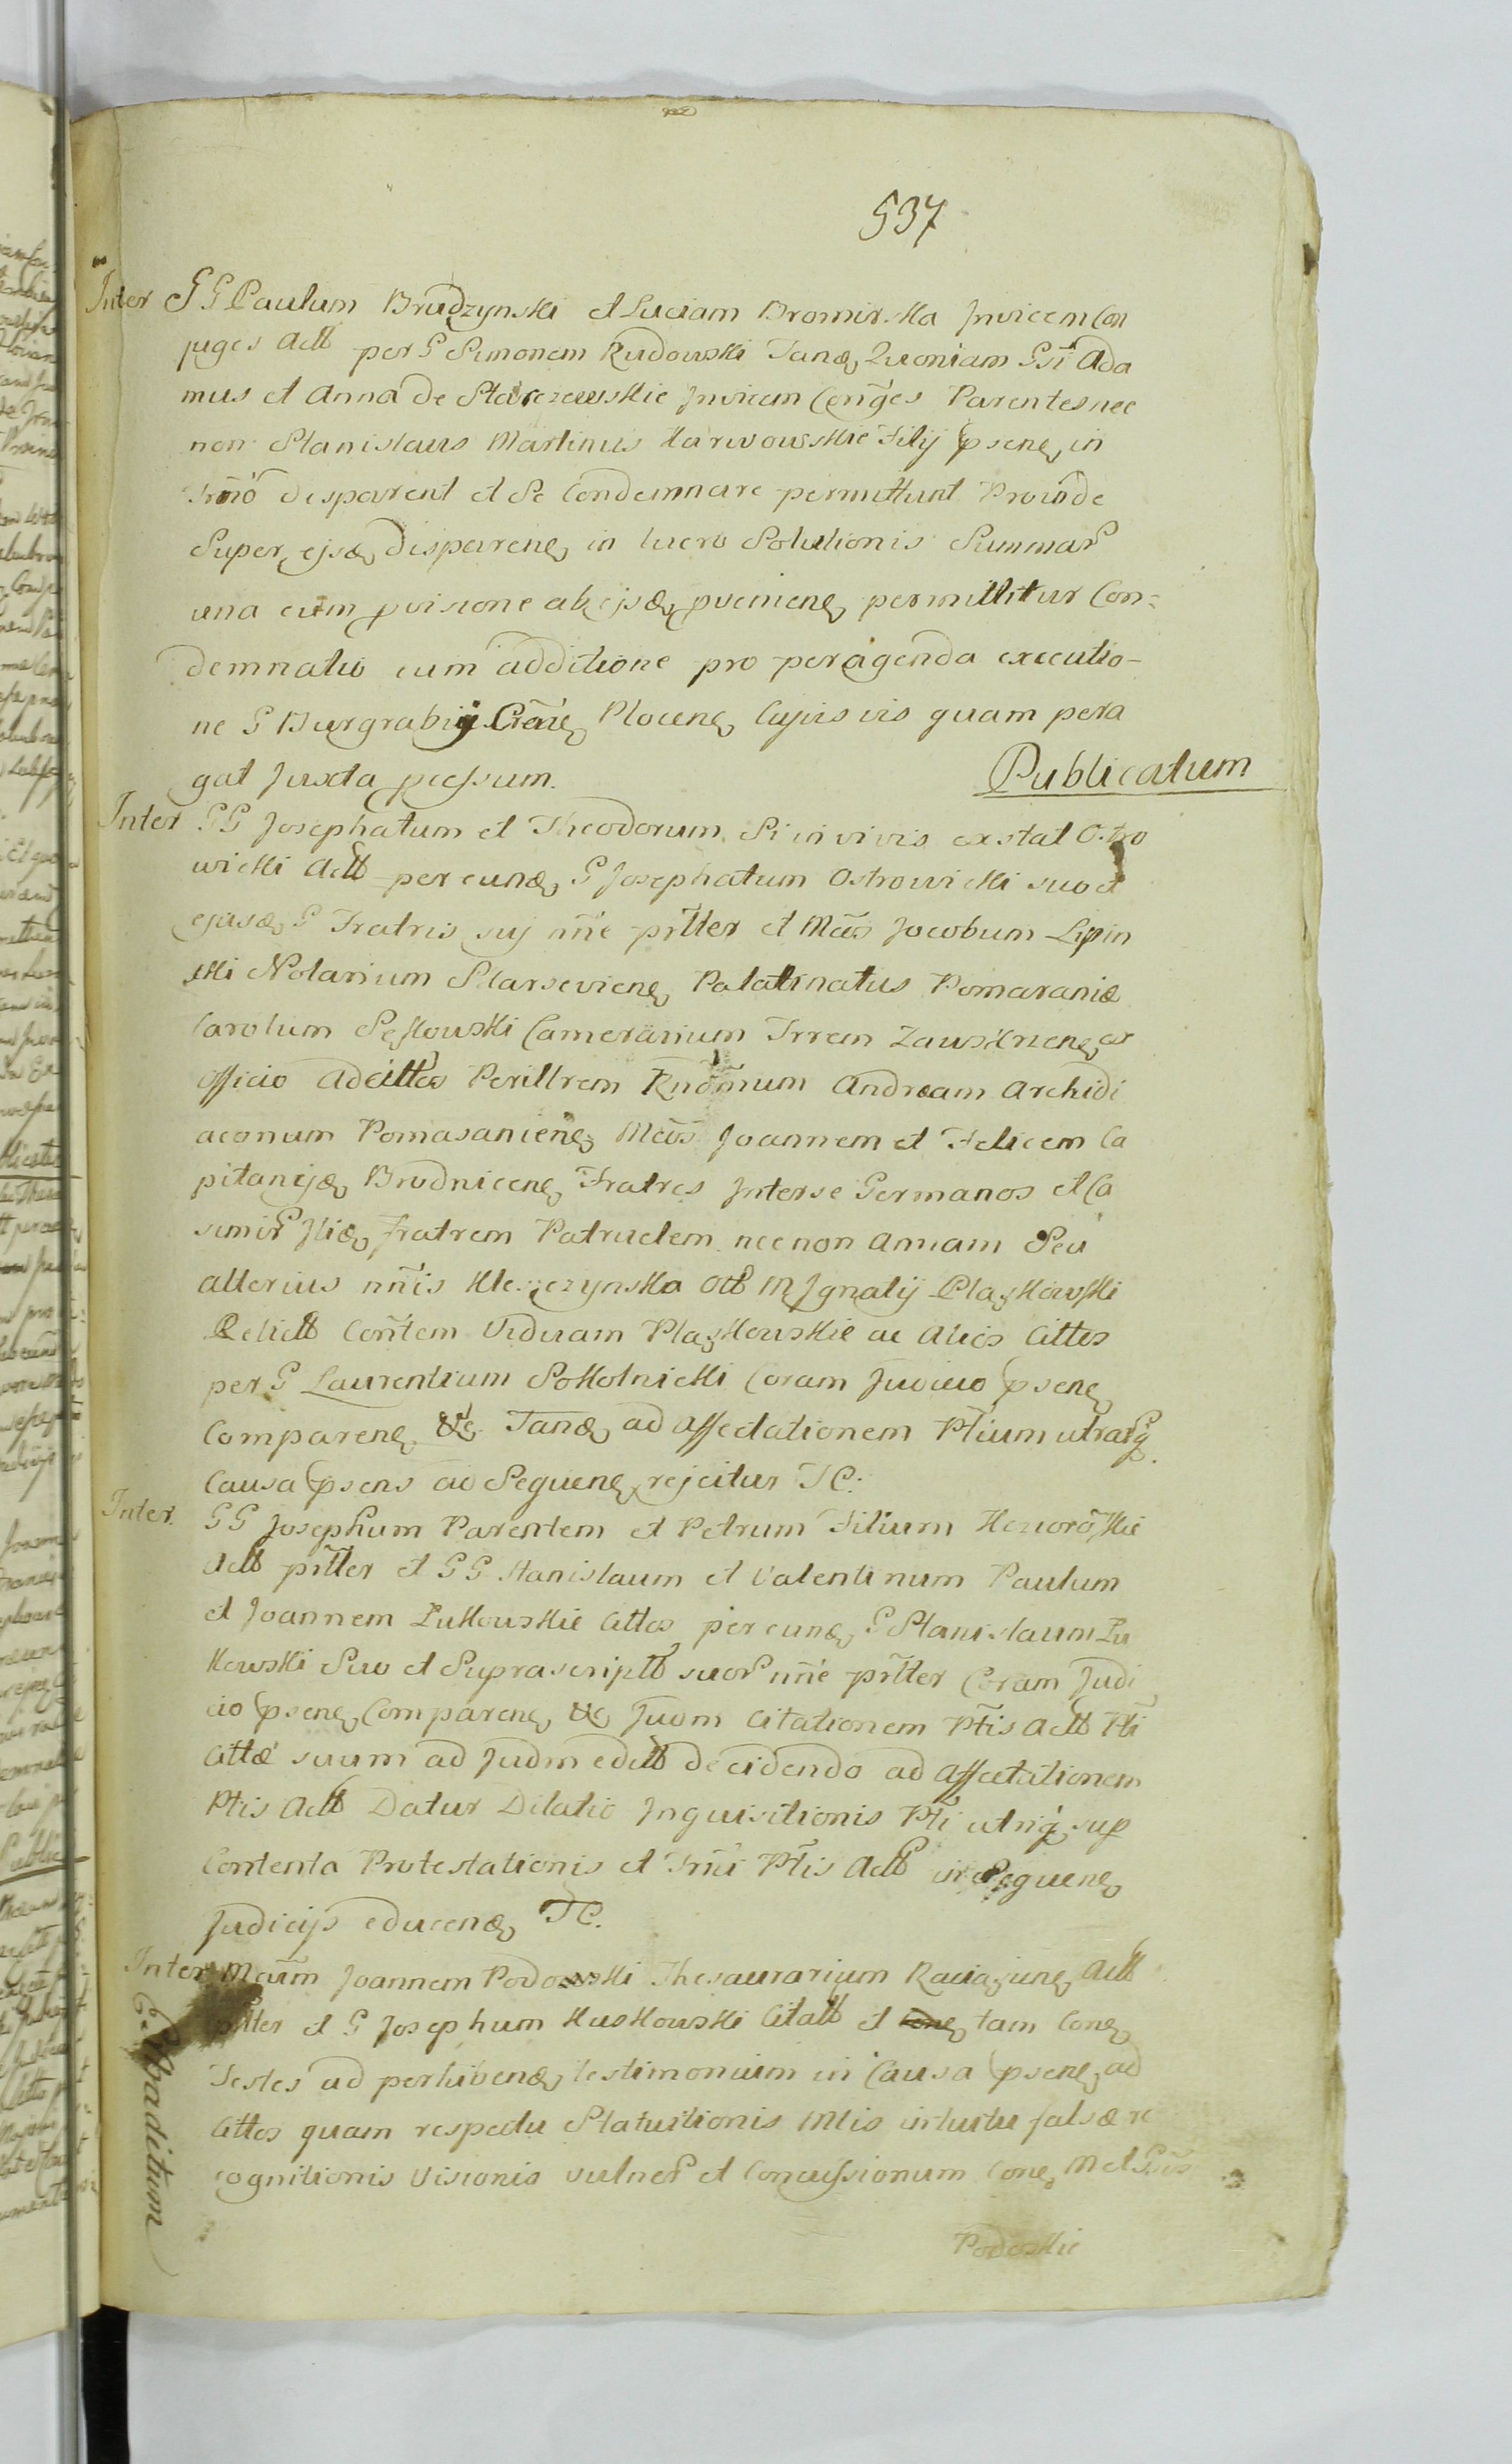 537
Inter GG Paulum Brudzynski et Luciam Bromirska Invicem Con
juges Actt per G Simonem Rudowski Tand, Quoniam Gsi Ada
mus et Anna de Starczewskie Invicem Conges Parentes nec
non Stanislaus Martinus Karwowskie Filij psene, in
Trmo disparent et Se Condemnare permittunt Proinde
Super ejsd, disparene, in lucro Solutionis Summar
una cum pvisione ab ejsd, pveniene, permittitur Con=
demnatio cum additione pro peragenda executio-
ne G Burgrabij Cræ, Plocene, Cujus vis quam pera
gat Juxta pcessum.
Publicatum
Inter GG Josephatum et Theodorum Si in vivis exstat Ostro
wicki Actt per eund, G Josephatum Ostrowicki suo et
ejusd, G Fratris suj nne prtter et Mcos Jacobum Lipin
ski Notarium Starseviene, Palatinatus Pomaraniæ
Carolum Camerarium Trrem Zawskrzene, ex
officio Adcittos Perillrem Rndmum Andream Archidi
aconum Pomasaniene, Mcos Joannem et Felicem Ca
pitanejd, Brodnicene, Fratres Interse Germanos et Ca
simir Itid, Fratrem Patruelem necnon Annam Seu
alterius nnis Olt M Ignatij Plaskowski
Relictt Contem Viduam Plaskowskie ac Alios Cittos
per G Laurentium Sokolnicki Coram Judicio psene,
Comparene, &c. Tand, ad affectationem Ptium utrarq.
Causa psens ad Sequene, rejcitur TC:
Inter. GG Josephum Parentem et Petrum Filium
Actt prtter et GG Stanislaum et Valentinum Paulum
et Joannem Lukowskie Cittos per eund, G Stanislaum Lu
kowski Suo et Suprascriptt suor nne prtter Coram Judi
cio psene, Comparene, &c Juom Citationem Ptis Actt Pti
Cittæ suum ad Judm edctt decidendo ad Affectationem
Ptis Actt Datur Dilatio Inquisitionis Pti utriq, sup
Contenta Protestationis et Trmi Ptis Actt in Sequene,
Judicijs educend, TC.
Inter Mcum Joannem Podowski Thesaurarium Raciazene, Actt
prtter et G Josephum Kuskowski Citatt et tam Cone,
Testes ad perhibend, testimonium in Causa psene, ad
Cittos quam respectu Statuitionis Mlis intuitu falsæ re
cognitionis Visionis vulner et Concussionum Cone, M et
Podoskie
Expaditum